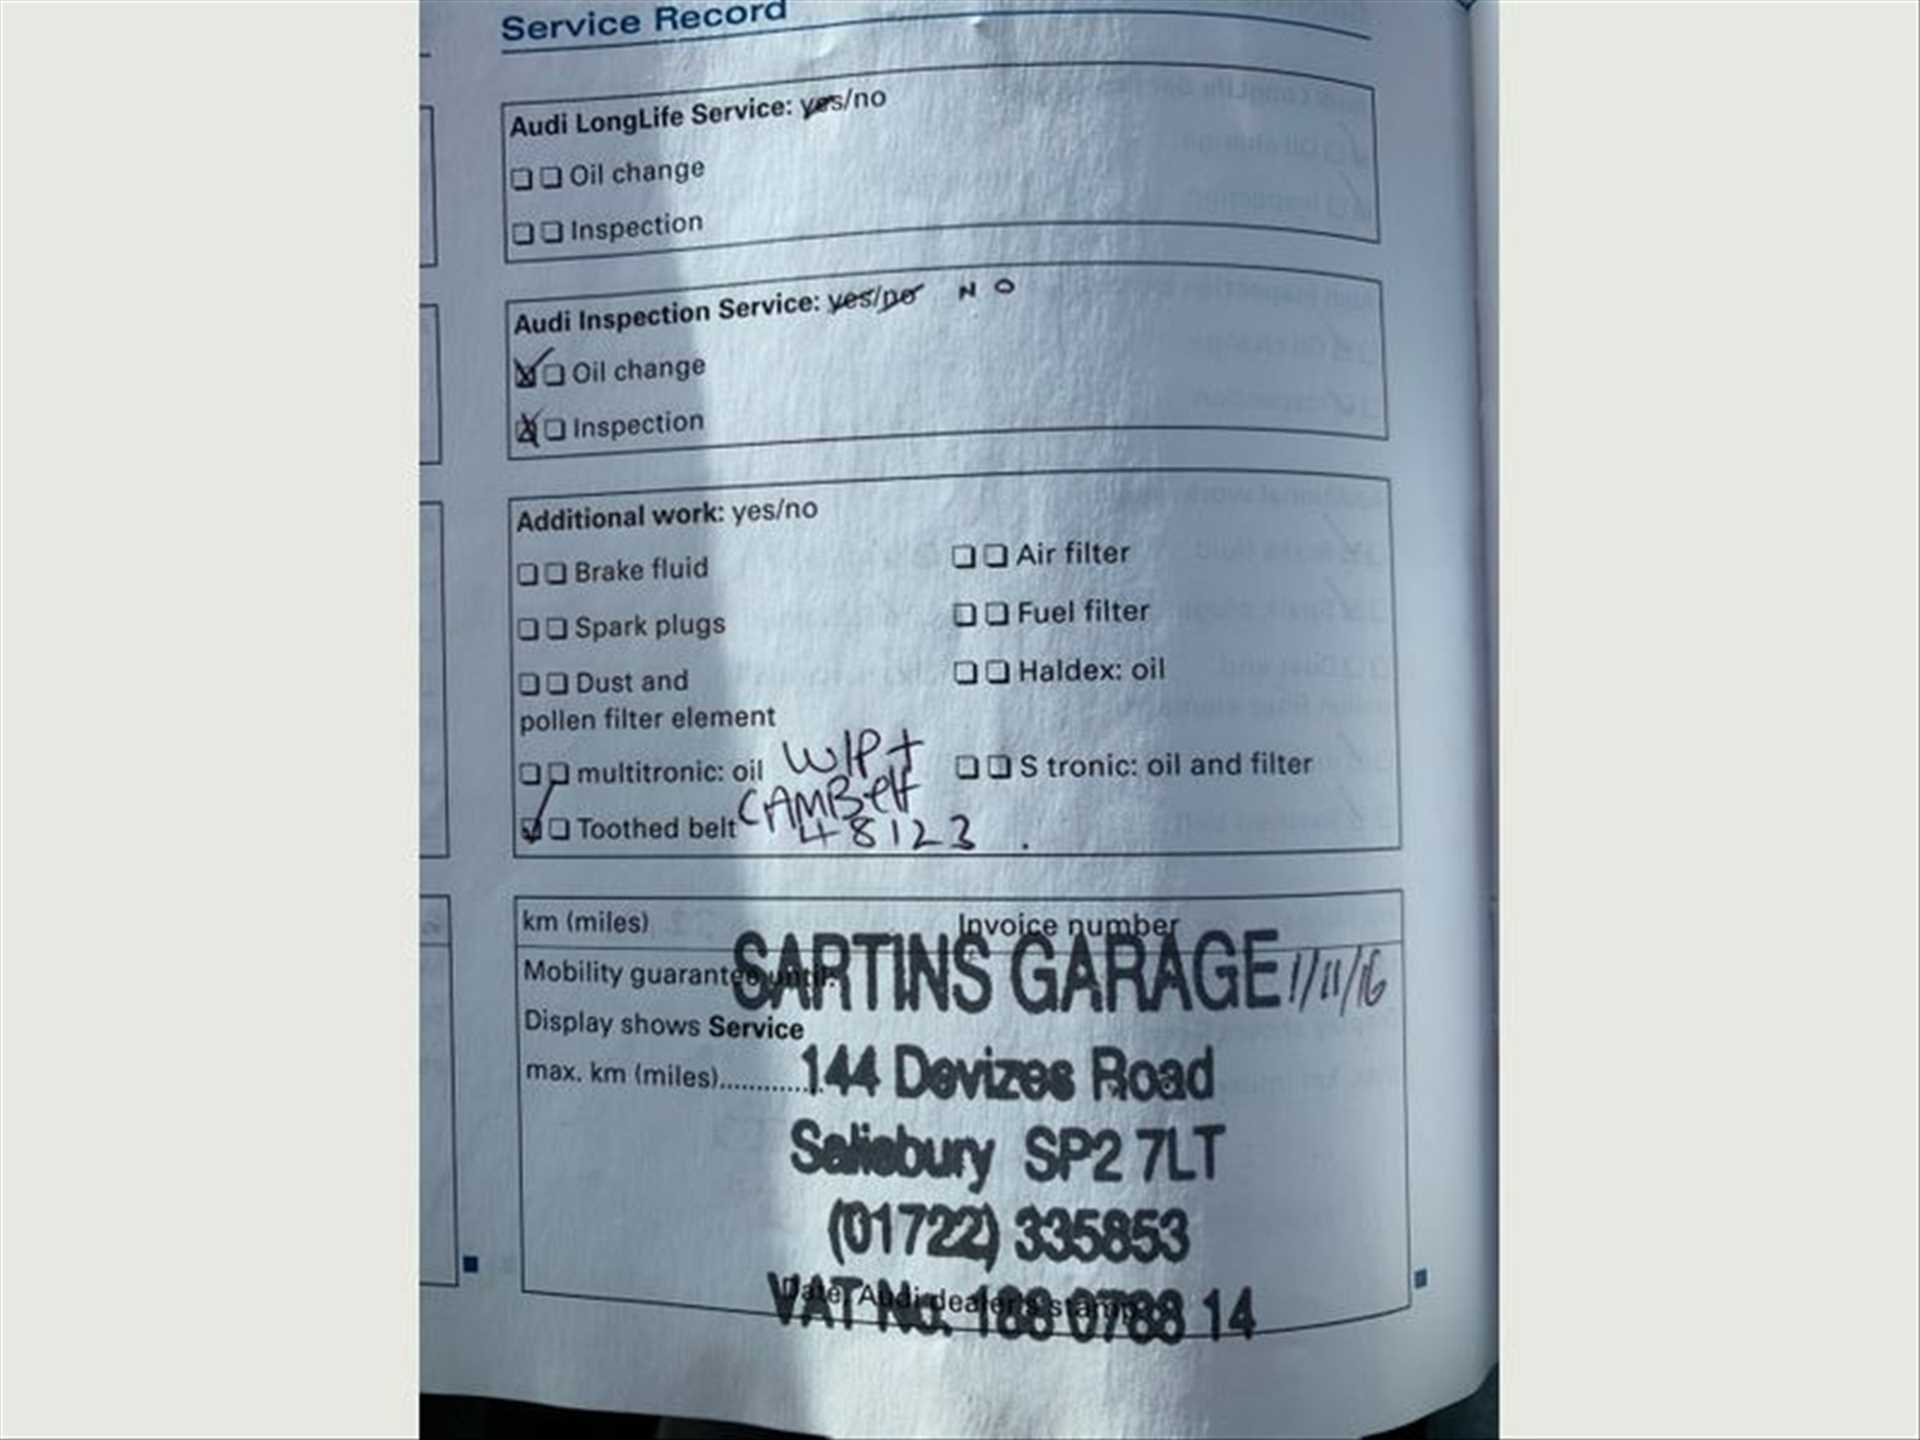 Service Record
Audi LongLife Service: yes/no
Oil change
Inspection
Audi Inspection Service: yes/no N O
Oil change
Inspection
Additional work: yes/no
Brake fluid
Air filter
Spark plugs
Fuel filter
Dust and
pollen filter element
Haldex: oil
multitronic: oil
W/P +
S tronic: oil and filter
Toothed belt
CAMBelt
48123
km (miles)
Invoice number
Mobility guarantee until:
SARTINS GARAGE 1/11/16
Display shows Service
max. km (miles)..............
144 Devizes Road
Salisbury SP2 7LT
(01722) 335853
Date, Audi dealer's stamp
VAT No. 188 0788 14